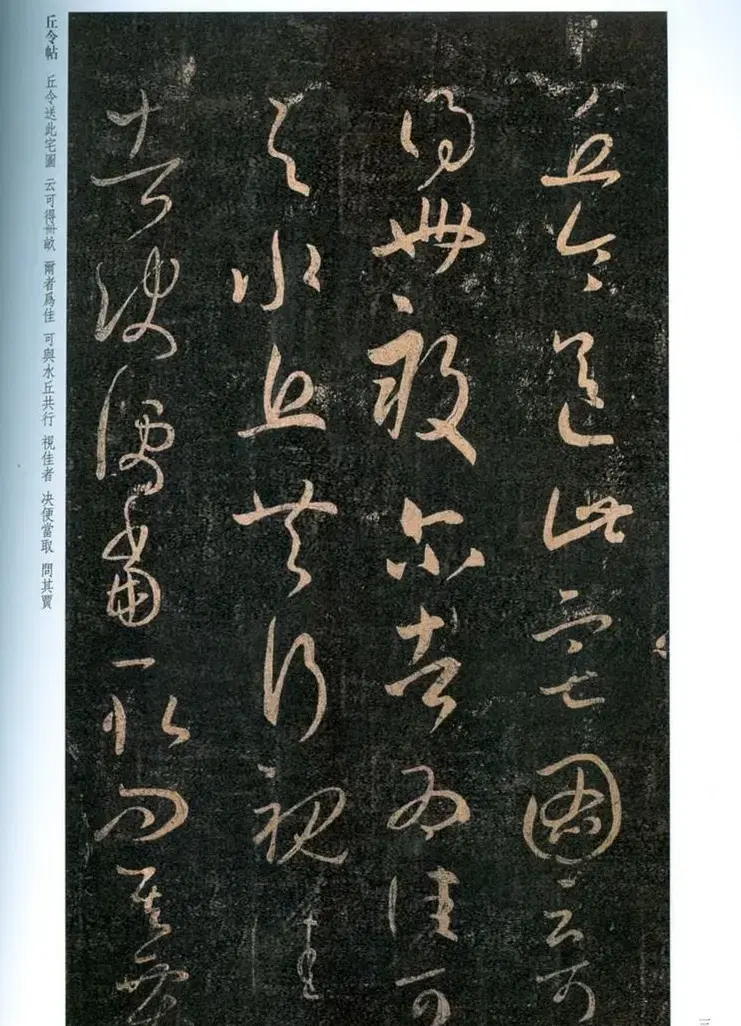 丘令送此宅圖云可
得卌畝尔者為佳可
與水丘共行視佳
者決便當取問其賈
丘令帖 丘令送此宅圖 云可得卌畝 爾者爲佳 可與水丘共行 視佳者 决便當取 問其賈
三